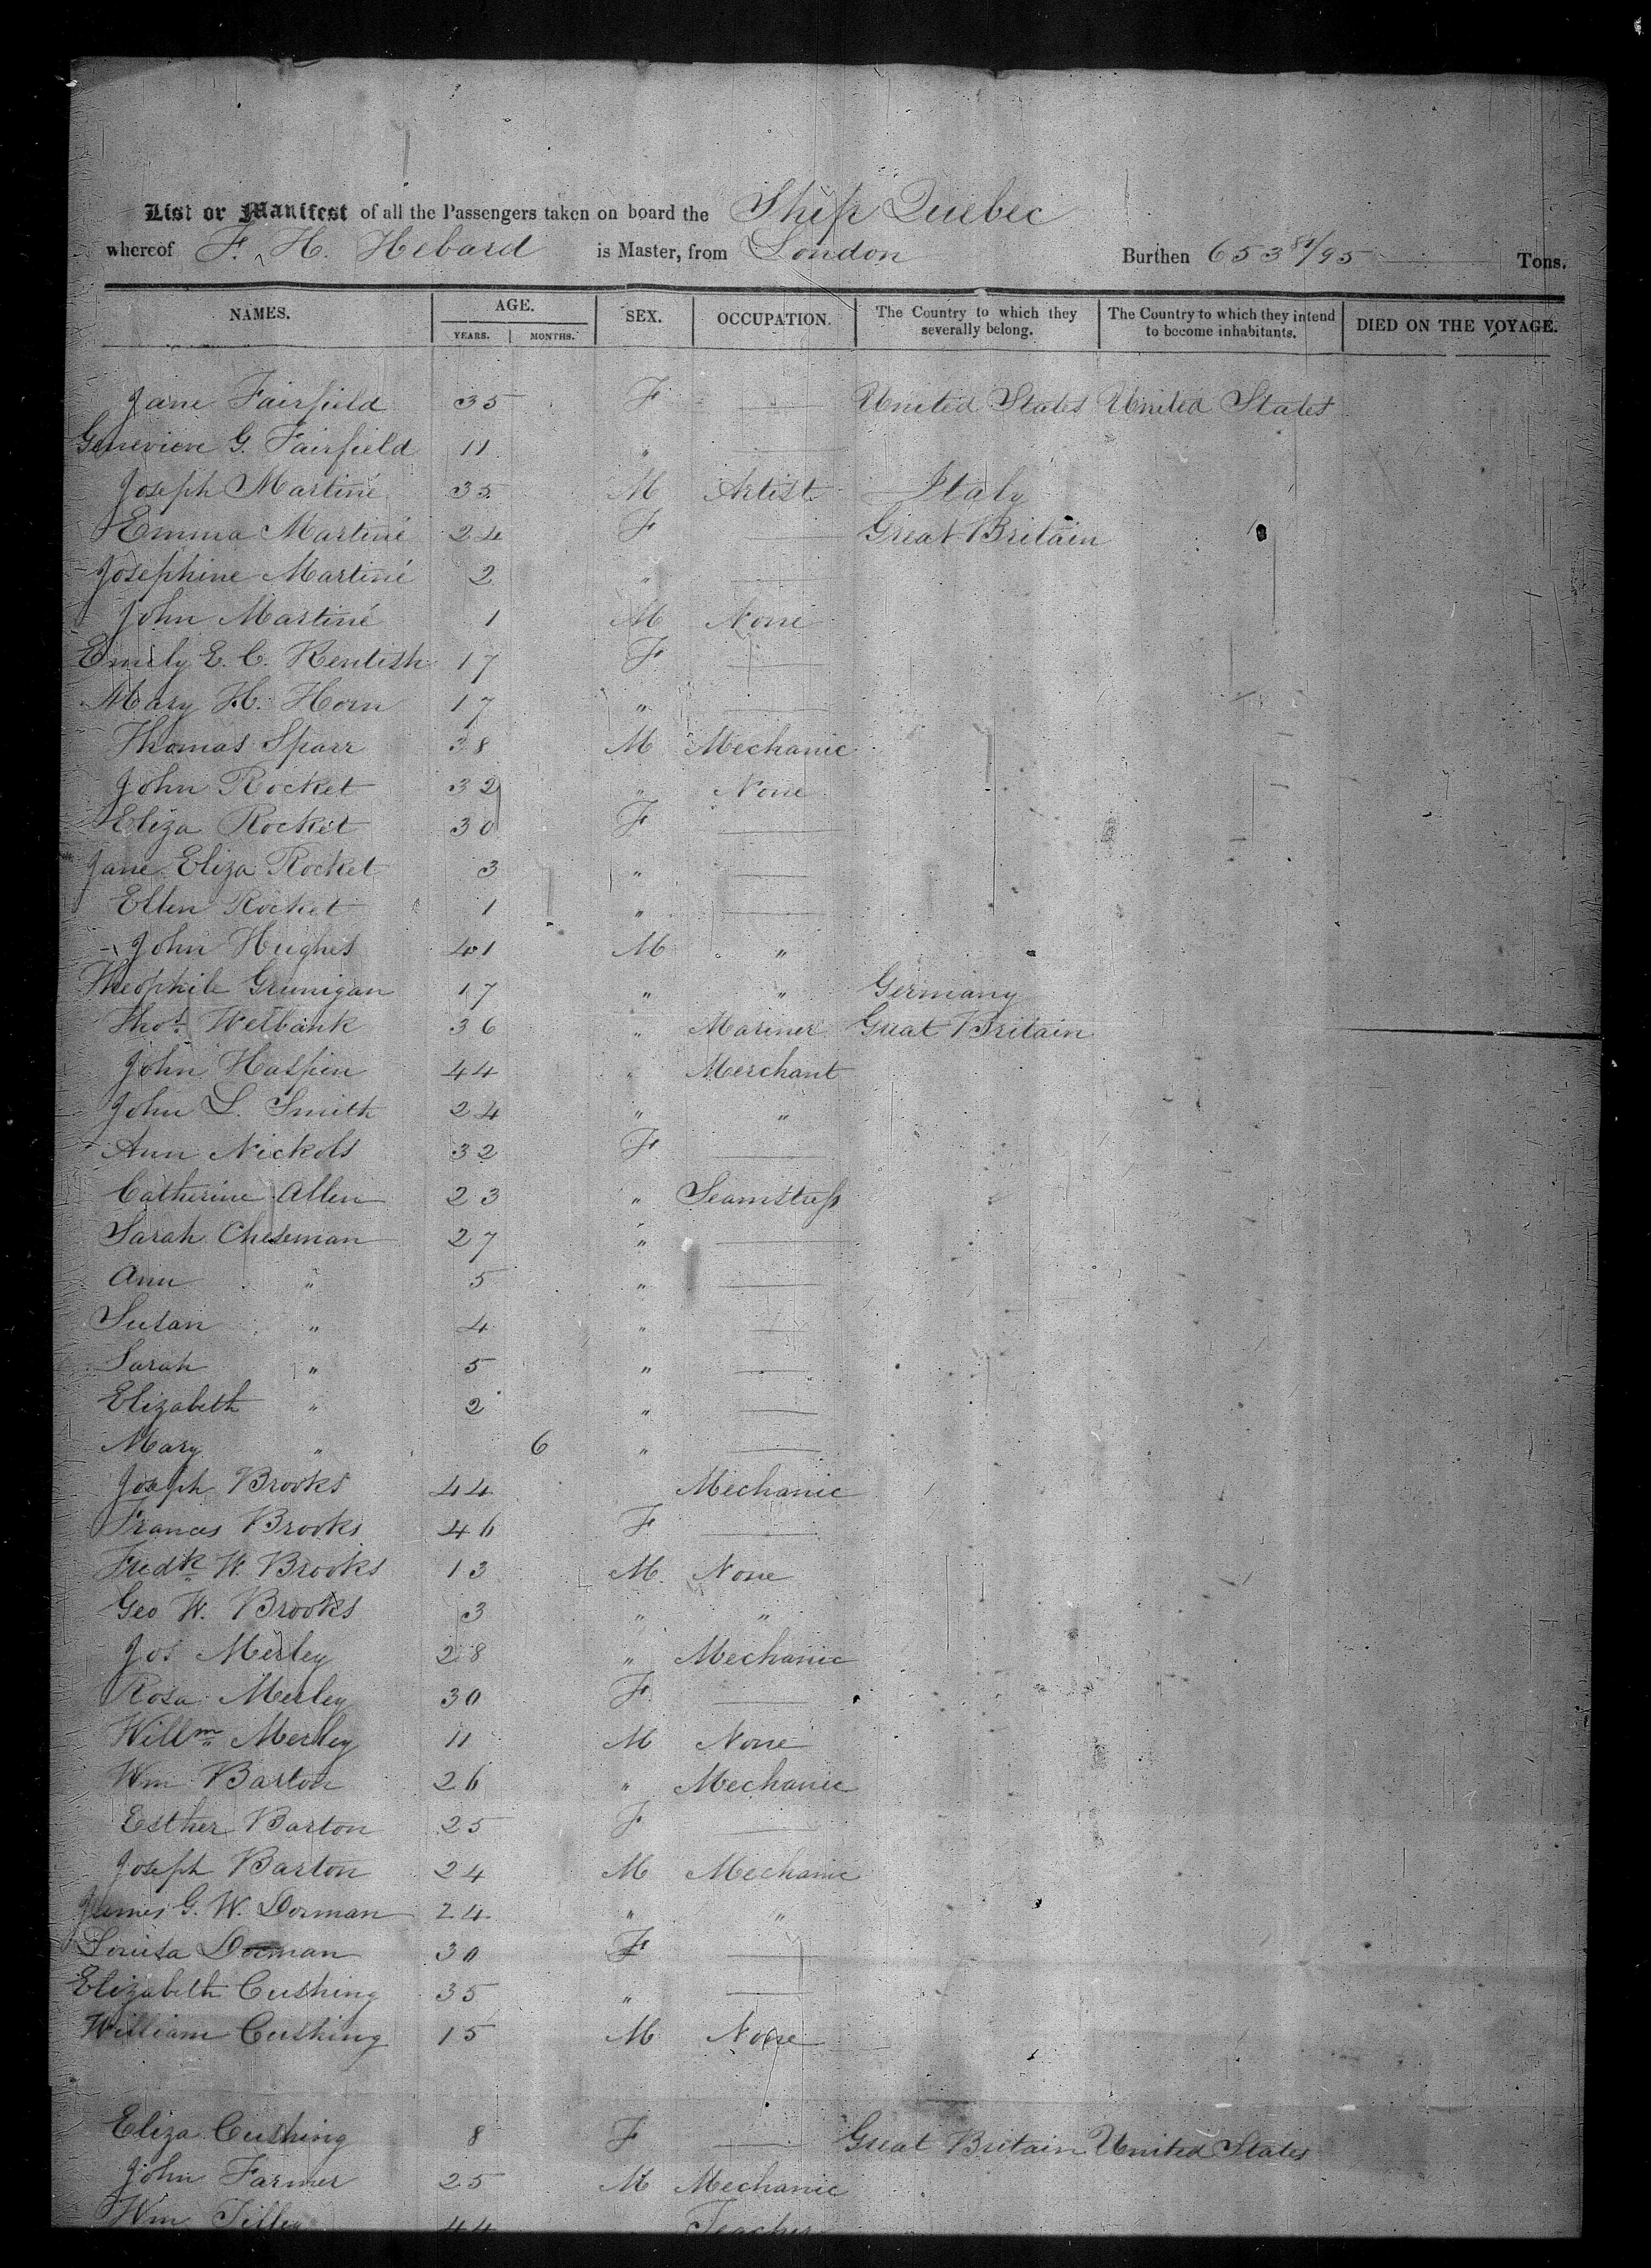 List or Manifest of all the Passengers taken on board the Ship Quebec
whereof F. H. Hebard is Master, from London Burthen 653 81/95 Tons.
NAMES. AGE. SEX. OCCUPATION. The Country to which they severally belong. The Country to which they intend to become inhabitants. DIED ON THE VOYAGE.
YEARS. MONTHS.
Jane Fairfield 35 F — United States United States
Genevieve G. Fairfield 11 " —
Joseph Martiné 35 M Artist Italy
Emma Martiné 24 F — Great Britain
Josephine Martiné 2 " —
John Martiné 1 M None
Emily E. C. Kentish 17 F —
Mary H. Horn 17 " —
Thomas Sparr 38 M Mechanic
John Rocket 32 " None
Eliza Rocket 30 F —
Jane Eliza Rocket 3 " —
Ellen Rocket 1 " —
John Hughes 41 M "
Theophile Grunigan 17 " " Germany
Thos. Welbank 36 " Mariner Great Britain
John Haspin 44 " Merchant
John L. Smith 24 " "
Ann Nickols 32 F —
Catherine Allen 23 " Seamstress
Sarah Cheseman 27 " —
Ann " 5 " —
Susan " 4 " —
Sarah " 5 " —
Elizabeth " 2 " —
Mary " 6 " —
Joseph Brooks 44 Mechanic
Frances Brooks 46 F —
Fredk W. Brooks 13 M None
Geo W. Brooks 3 " "
Jos Merley 28 " Mechanic
Rosa Merley 30 F —
Willm Merley 11 M None
Wm Barton 26 " Mechanic
Esther Barton 25 F —
Joseph Barton 24 M Mechanic
James G. W. Dorman 24 " "
Louisa Dorman 30 F —
Elizabeth Cushing 35 " —
William Cushing 15 M None
Eliza Cushing 8 F — Great Britain United States
John Farmer 25 M Mechanic
Wm Tilley 44 Teacher